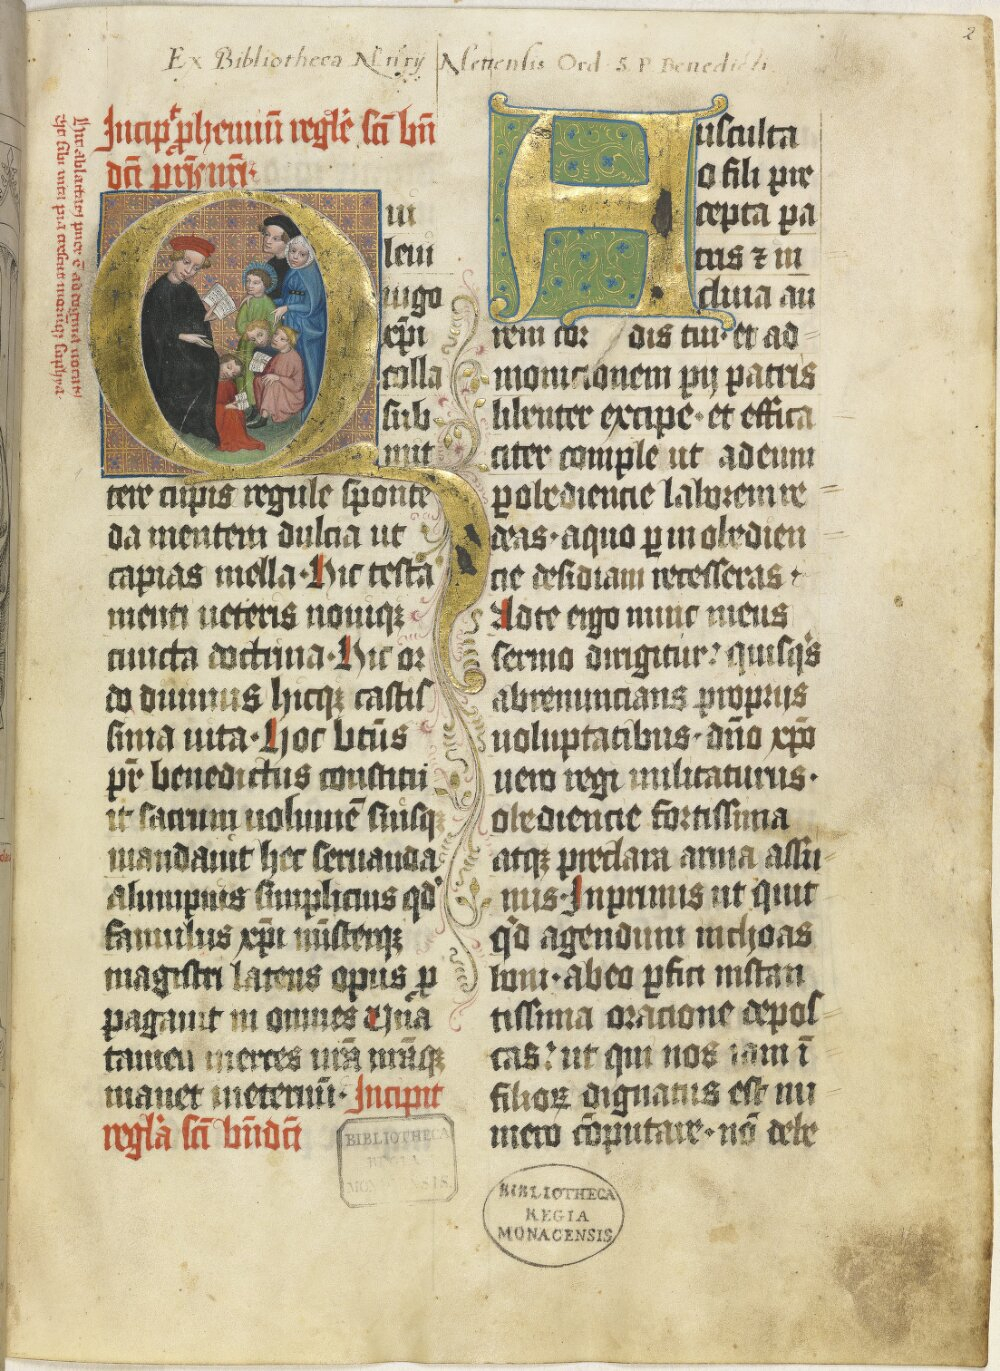 2
Ex Bibliotheca Mettensis Ord. S. P. Benedicti
Incip̅ ꝓhemiū regl̅e sc̅i bn̅
dc̅i pr̅is nr̅i·
Qui
leni
iugo
xp̅i
colla
sub
mit
tere cupis regule sponte
da mentem dulcia ut
capias mella· Hic testā
menti ueteris nouiqꝫ
cuncta doctrina· Hic or
do diuinus hicqꝫ castis
sima uita· Hoc bt̅us
pr̅ benedictus constitu
it sacrum uolumē suisqꝫ
mandauit hec seruanda
alumpnis simplicius qd̕
famulus xp̅i mīsterqꝫ
magistri latens opus ꝓ
pagauit in omnes Una
tamen merces
manet ineternū· Incipit
regl̅a sc̅i bn̅dc̅i
Ausculta
O fili pre
cepta pa
tris ⁊ in
clina au
rem cor dis tui· et ad
monicionem pij patris
libenter excipe· et effica
citer comple ut ad eum
ꝑ obediencie laborem re
deas· a quo ꝑ in obedien
cie desidiam recesseras·
Ad te ergo nunc meus
sermo dirigitur: quisq̕s
abrenuncians proprijs
uoluptatibus· dn̅o xp̅o
uero regi militaturus·
obediencie fortissima
atqꝫ preclara arma assu
mis· Inprimis ut quit
q̕d agendum inchoas
boni· ab eo ꝑfici instan
tissima oracione depos
cas: ut qui nos iam ī
filioꝝ dignatus est nu
mero cōputare· nō debe
BIBLIOTHECA
REGIA
BIBLIOTHECA
REGIA
MONACENSIS